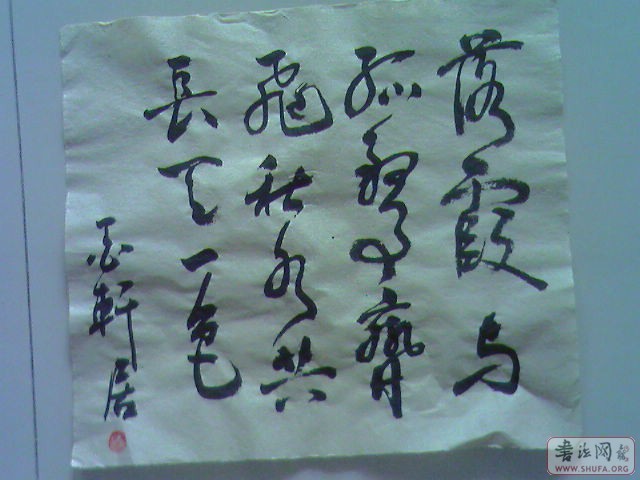 落霞与
孤鹜齊
飛秋水共
長天一色
墨軒居
書法网
WWW.SHUFA.ORG